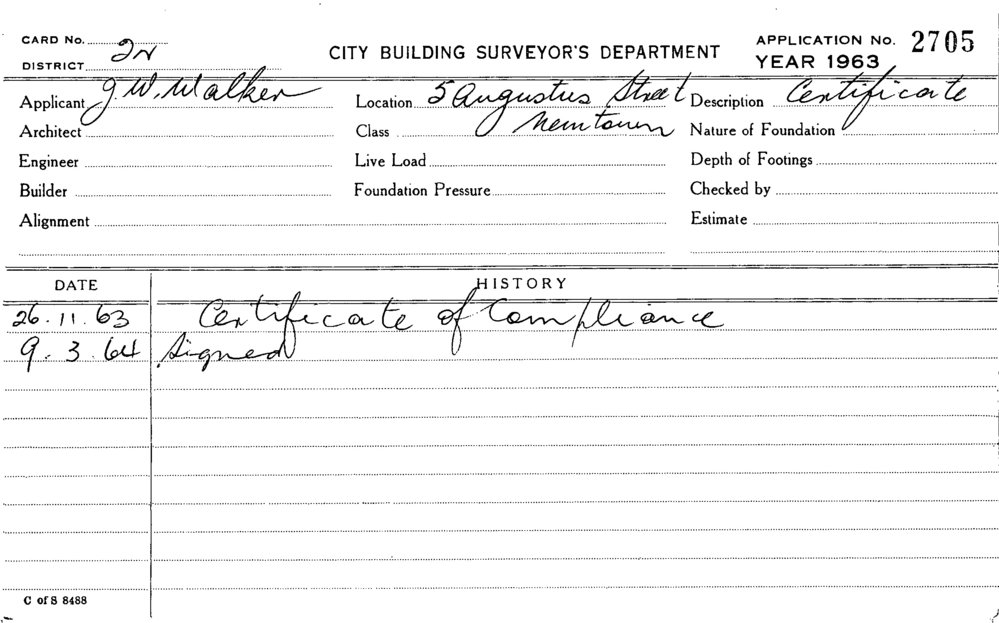 CARD No. 2N
DISTRICT
CITY BUILDING SURVEYOR'S DEPARTMENT
APPLICATION No. 2705
YEAR 1963
Applicant J.W. Walker Location 5 Augustus Street Description Certificate
Architect Class Newtown Nature of Foundation
Engineer Live Load Depth of Footings
Builder Foundation Pressure Checked by
Alignment Estimate
DATE HISTORY
26.11.63 Certificate of Compliance
9.3.64 Signed
C of S 8488